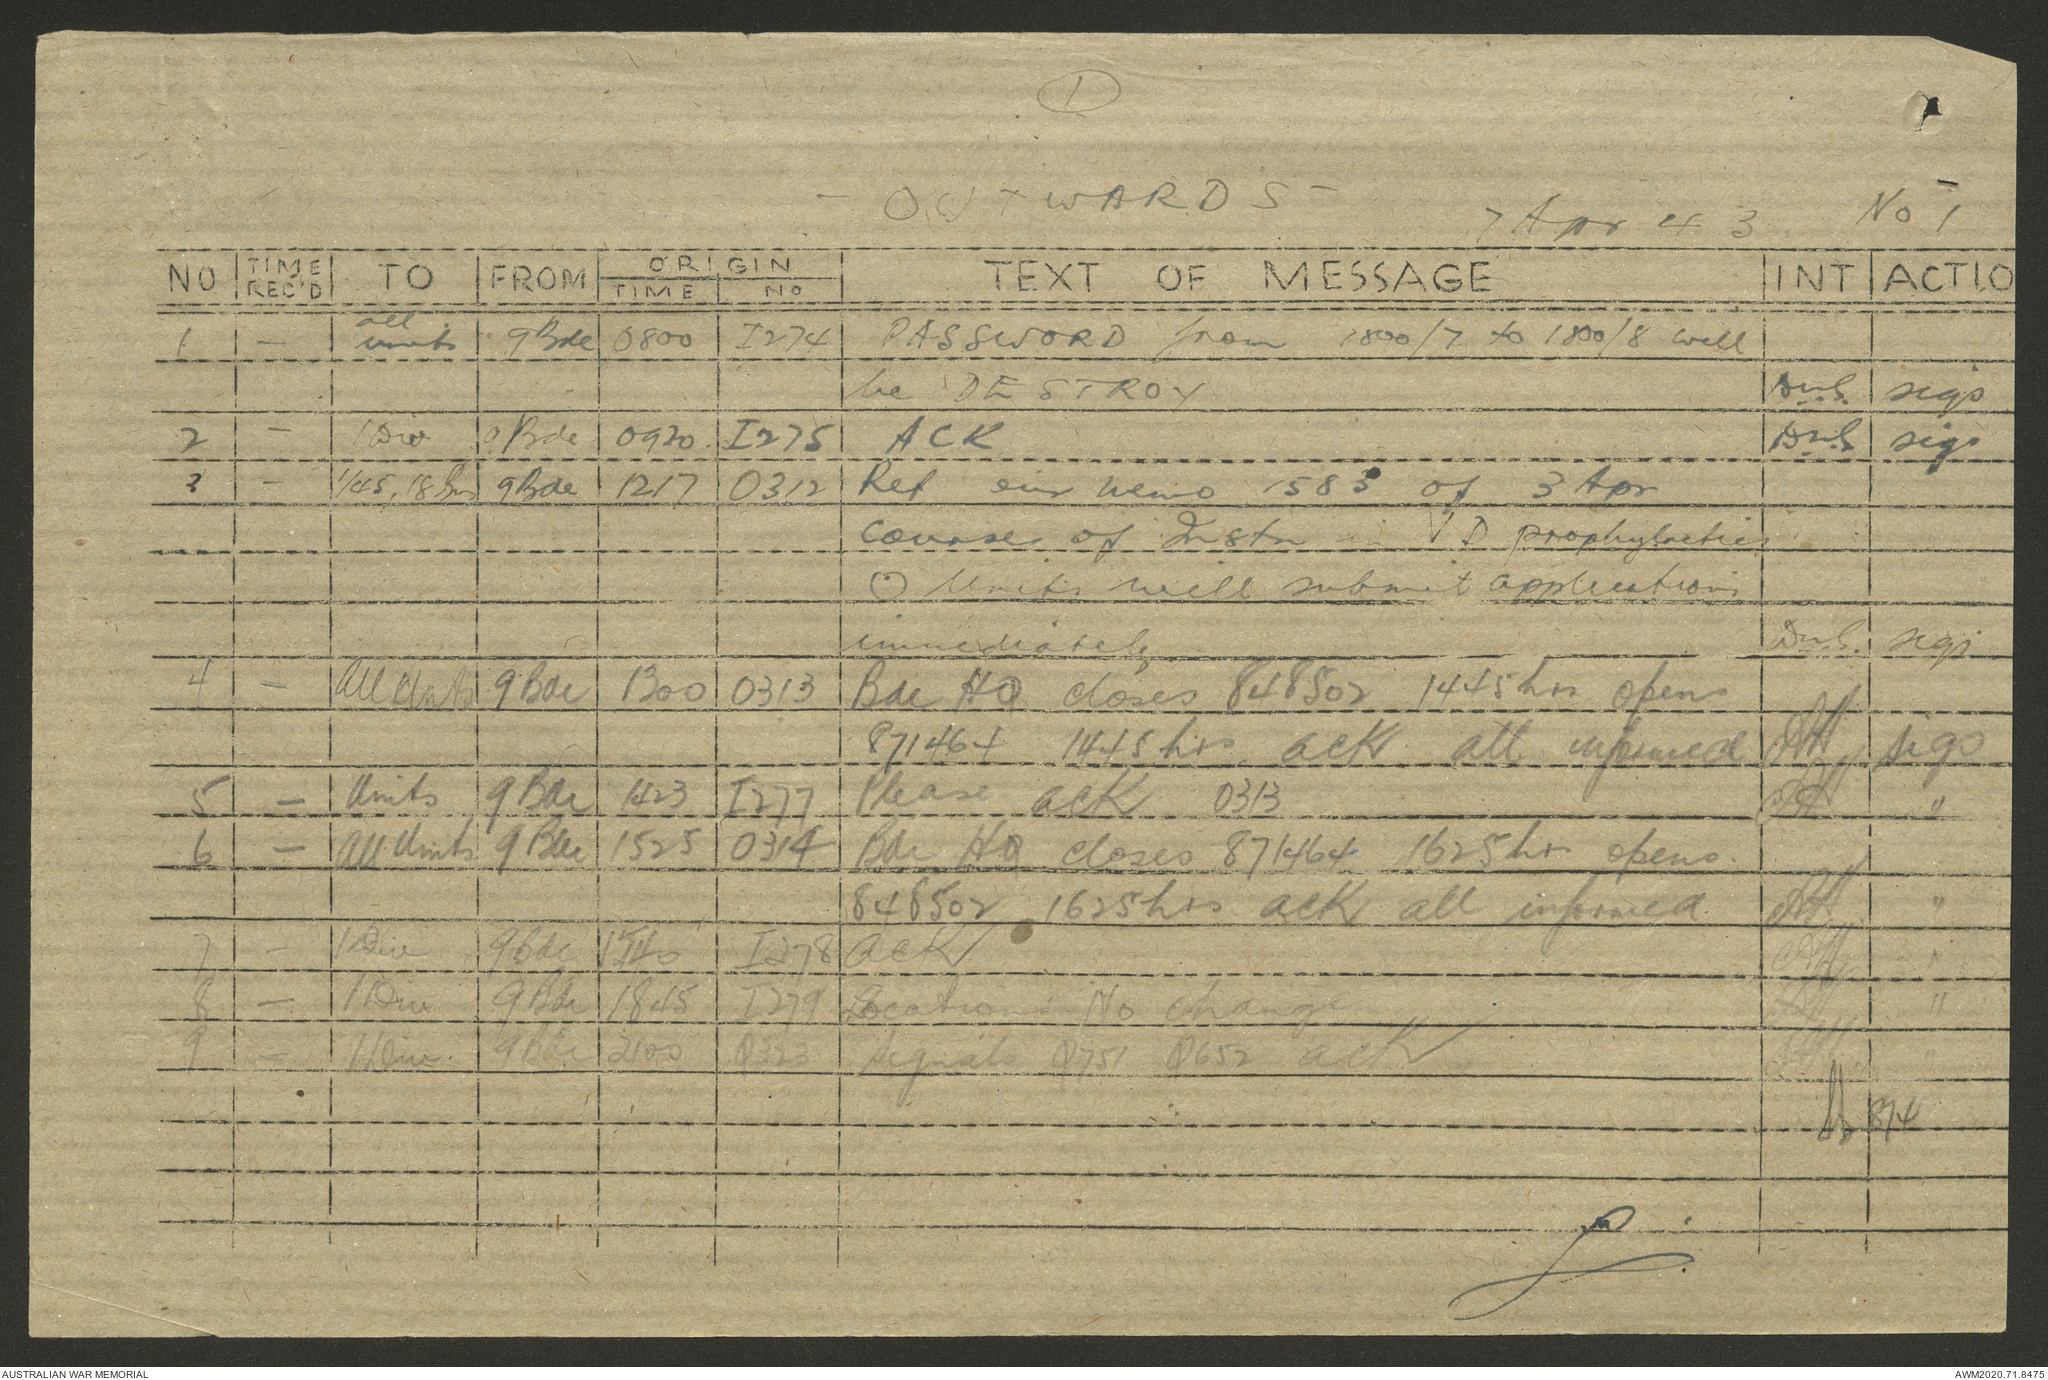 1
- OUTWARDS -
7 Apr 43 No 1
NO TIME REC'D TO FROM ORIGIN TIME NO TEXT OF MESSAGE INT ACTIO
1 - all units 9 Bde 0800 I274 PASSWORD from 1800/7 to 1800/8 will
be DESTROY sigs
2 - 1 Div 9 Bde 0920 I275 ACK sigs
3 - 1/45, 18 Bns 9 Bde 1217 O312 Ref our memo 1583 of 3 Apr
courses of Instn VD prophylactics
Units will submit applications
immediately sigs
4 - All Units 9 Bde 1300 O313 Bde HQ closes 848502 1445 hrs opens
871464 1445 hrs ack all informed sigs
5 - Units 9 Bde 1423 I277 Please ack O313 "
6 - All Units 9 Bde 1525 O314 Bde HQ closes 871464 1625 hrs opens
848502 1625 hrs ack all informed "
7 - 1 Div 9 Bde I278 ack "
8 - 1 Div 9 Bde 1845 I279 Location No change "
9 - 1 Div 9 Bde 2100 Q323 Signals Q751 Q652 ack "
8/4
AUSTRALIAN WAR MEMORIAL AWM2020.71.8475